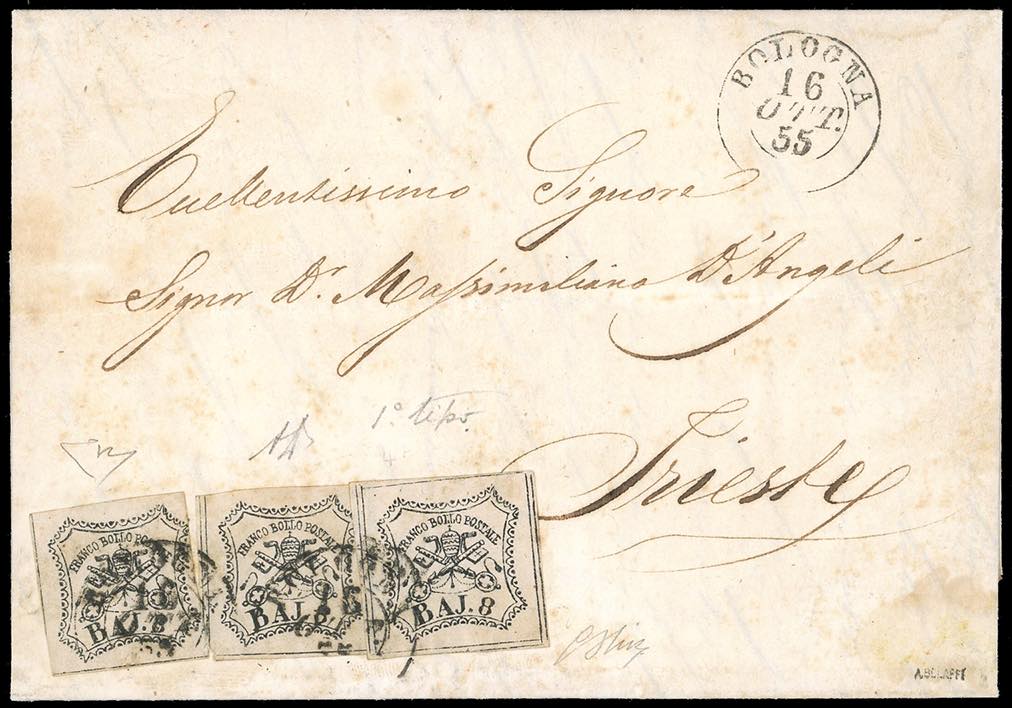 BOLOGNA
16
OTT.
55
Eccellentissimo Signore
Signor Dr. Massimiliano D'Angeli
Trieste
1º tipo.
4
FRANCO BOLLO POSTALE
BAJ. 8
FRANCO BOLLO POSTALE
BAJ. 8
FRANCO BOLLO POSTALE
BAJ. 8
BOLOGNA
16
BOLOGNA
16
A.BOLAFFI